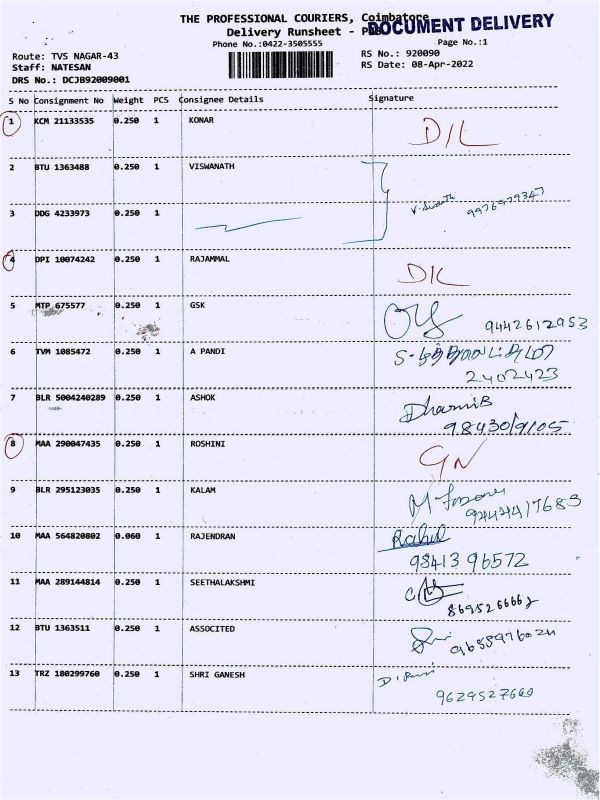 THE PROFESSIONAL COURIERS, Coimbatore
DOCUMENT DELIVERY
Delivery Runsheet -
Phone No.:0422-3505555
Page No.:1
Route: TVS NAGAR-43
RS No.: 920090
Staff: NATESAN
RS Date: 08-Apr-2022
DRS No.: DCJB92009001
S No Consignment No Weight PCS Consignee Details Signature
1 KCM 21133535 0.250 1 KONAR D/L
2 BTU 1363488 0.250 1 VISWANATH
3 DDG 4233973 0.250 1 9976979347
4 DPI 10074242 0.250 1 RAJAMMAL D/L
5 MTP 675577 0.250 1 GSK
9442612953
6 TVM 1085472 0.250 1 A PANDI
2402423
7 BLR 5004240289 0.250 1 ASHOK
98430/9105
8 MAA 290047435 0.250 1 ROSHINI
9 BLR 295123035 0.250 1 KALAM
9444417689
10 MAA 564820802 0.060 1 RAJENDRAN Rahul
98413 96572
11 MAA 289144814 0.250 1 SEETHALAKSHMI
12 BTU 1363511 0.250 1 ASSOCITED
13 TRZ 180299760 0.250 1 SHRI GANESH